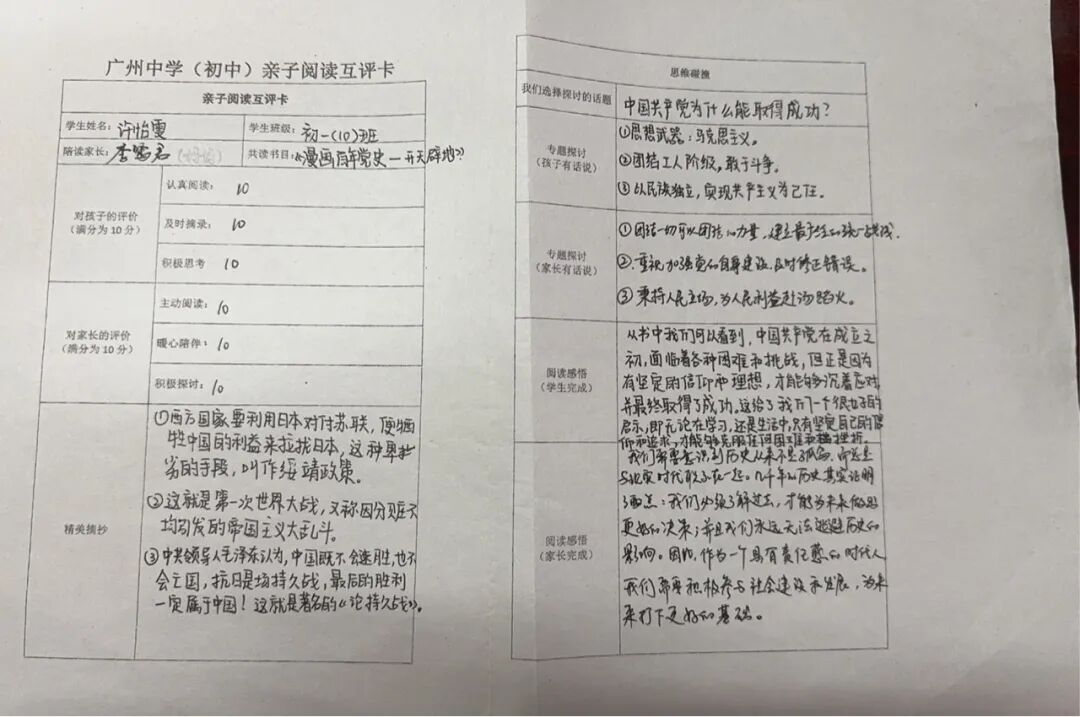 广州中学（初中）亲子阅读互评卡
亲子阅读互评卡
学生姓名：许怡雯 学生班级：初一(10)班
陪读家长：李雪君 共读书目：《漫画百年党史—开天辟地》
对孩子的评价
（满分为 10 分）
认真阅读： 10
及时摘录： 10
积极思考 10
对家长的评价
（满分为 10 分）
主动阅读： 10
暖心陪伴： 10
积极探讨： 10
精美摘抄
①西方国家要利用日本对付苏联，便牺
牲中国的利益来拉拢日本，这种卑鄙
劣的手段，叫作绥靖政策。
②这就是第一次世界大战，又称因分赃不
均引发的帝国主义大乱斗。
③中共领导人毛泽东认为，中国既不会速胜，也不
会亡国，抗日是场持久战，最后的胜利
一定属于中国！这就是著名的《论持久战》。
思维碰撞
我们选择探讨的话题 中国共产党为什么能取得成功？
专题探讨
（孩子有话说）
①思想武器：马克思主义。
②团结工人阶级，敢于斗争。
③以民族独立，实现共产主义为己任。
专题探讨
（家长有话说）
①团结一切可以团结的力量，建立最广泛的统一战线.
②.重视加强党的自身建设.及时修正错误。
③秉持人民立场，为人民利益赴汤蹈火。
阅读感悟
（学生完成）
从书中我们可以看到，中国共产党在成立之
初，面临着各种困难和挑战，但正是因为
有坚定的信仰和理想，才能够沉着应对，
并最终取得了成功。这给了我们一个很好的
启示，即无论在学习，还是生活中，只有坚定自己的信
仰和追求，才能够克服任何困难和挫折。
阅读感悟
（家长完成）
我们需要意识到历史从来不是孤岛，而总是
与现实时代联系在一起。几千年的历史其实证明
了两点：我们必须了解过去，才能为未来做出
更好的决策；并且我们永远无法逃避历史的
影响。因此，作为一个具有责任感的时代人
我们需要积极参与社会建设和发展，为未
来打下更好的基础。